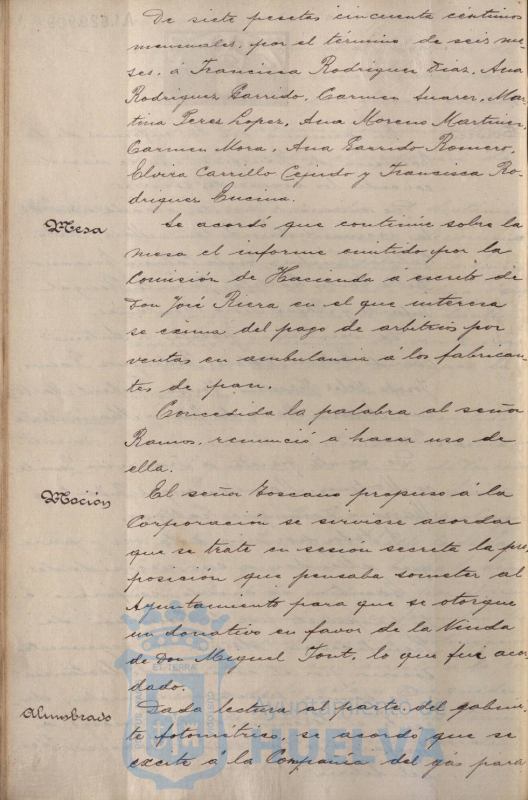 De siete pesetas cincuenta céntimos
mensuales, por el término de seis me-
ses, á Francisca Rodriguez Diaz, Ana
Rodriguez Garrido, Carmen Suarez, Mar-
tina Perez Lopez, Ana Moreno Martinez
Carmen Mora, Ana Garrido Romero,
Elvira Carrillo Cejudo y Francisca Ro-
driguez Encina.
Mesa
Se acordó que continúe sobre la
mesa el informe emitido por la
Comisión de Hacienda á escrito de
Don José Riera en el que interesa
se exima del pago de arbitrios por
ventas en ambulancia á los fabrican-
tes de pan.
Concedida la palabra al señor
Ramos, renunció á hacer uso de
ella.
Moción
El señor Toscano propuso á la
Corporación se sirviese acordar
que se trate en sesión secreta la pro-
posición que pensaba someter al
Ayuntamiento para que se otorgue
un donativo en favor de la Viuda
de Don Miguel Font, lo que fué acor-
dado.
Alumbrado
Dada lectura al parte del gabine-
te fotométrico, se acordó que se
excite á la Compañia del gás para
Ayuntamiento de
HUELVA